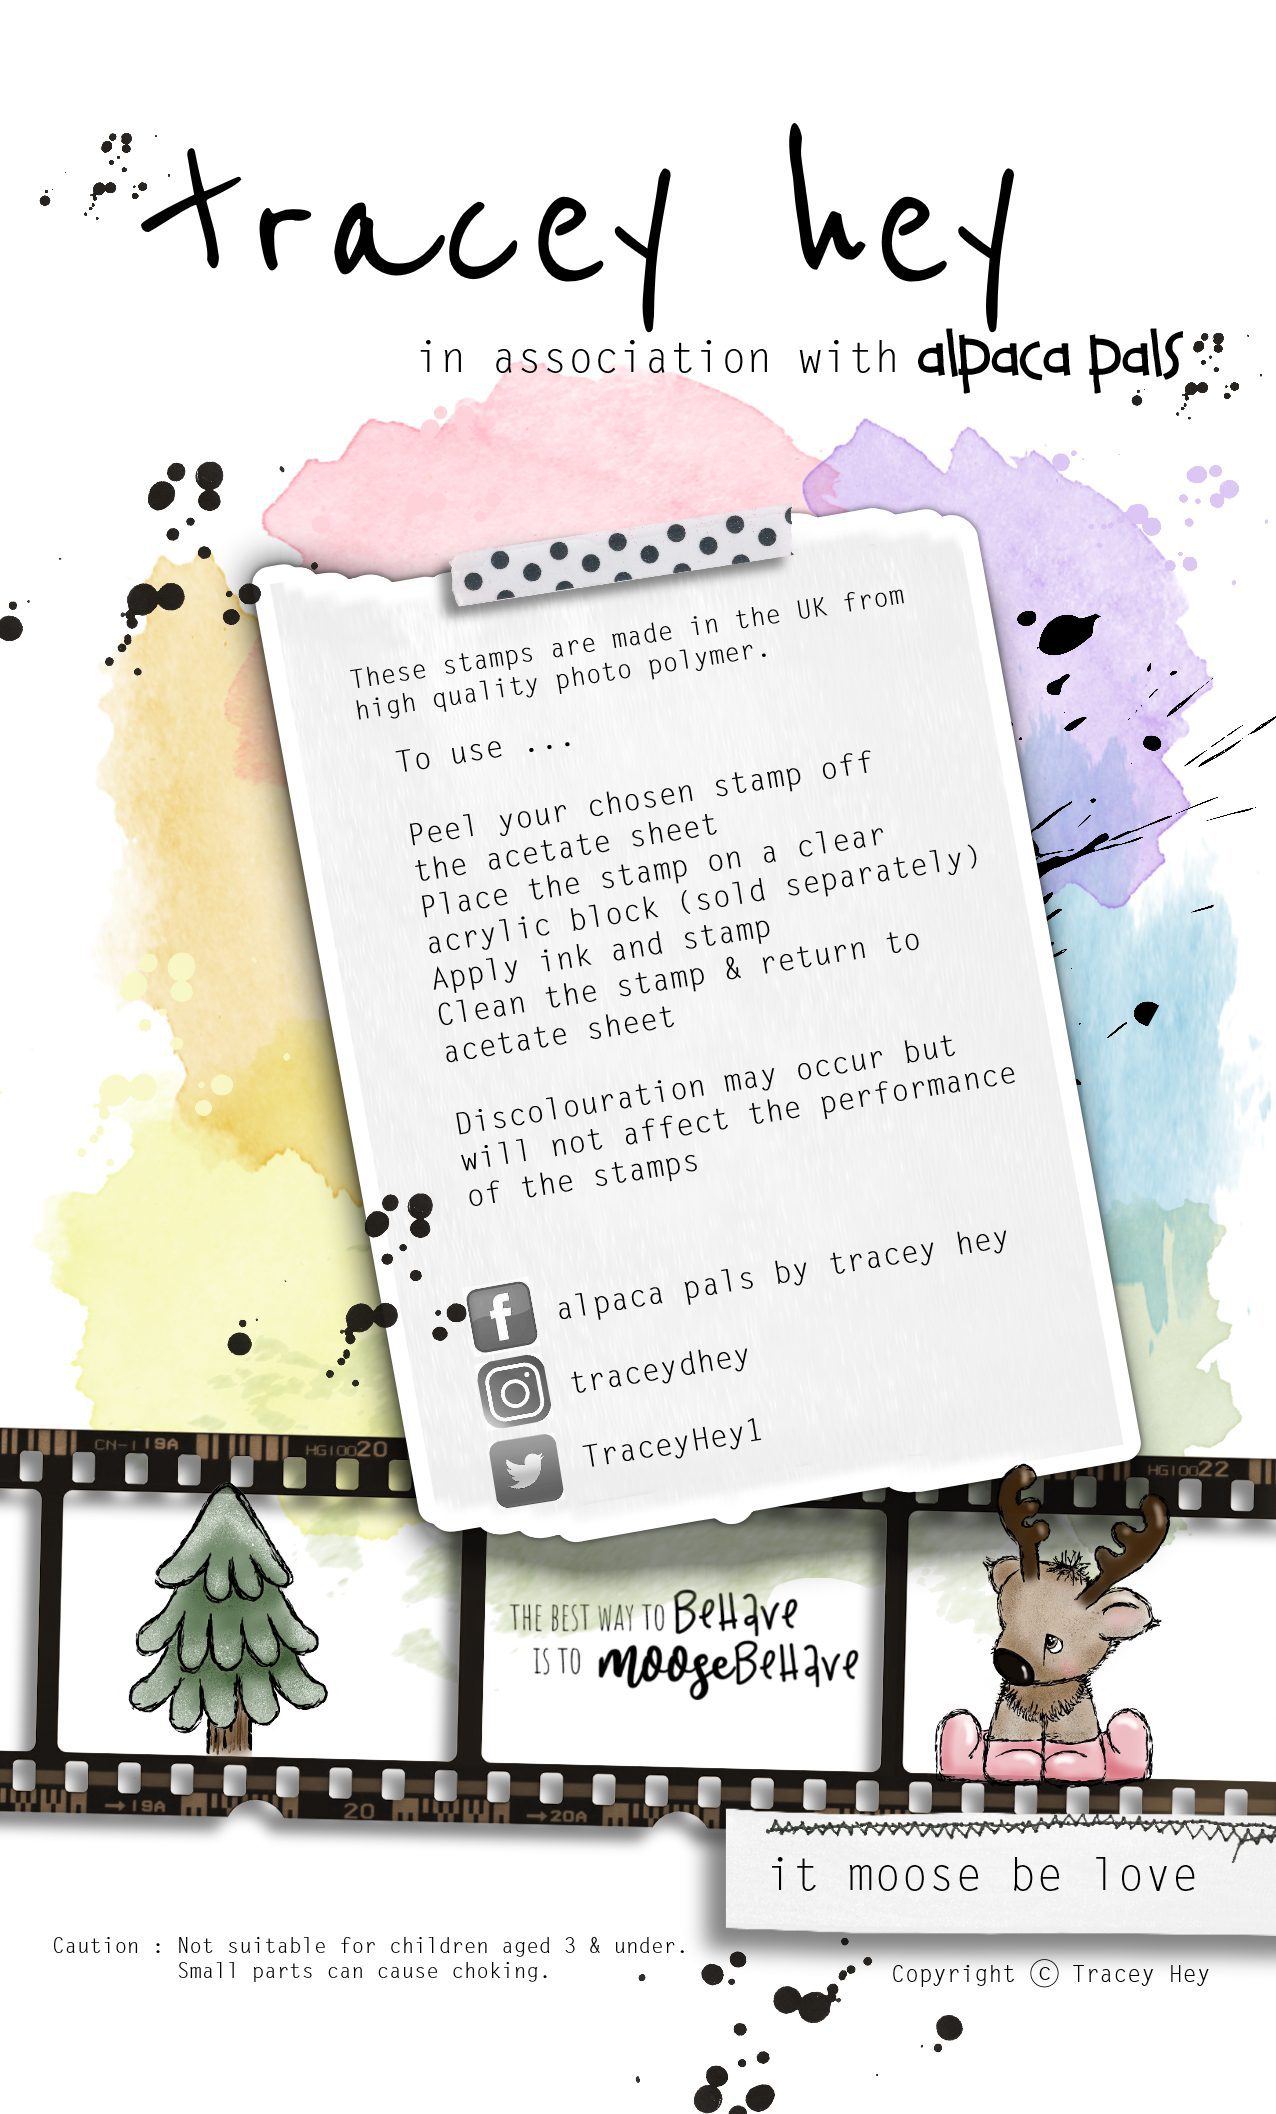 tracey hey
in association with alpaca pals
These stamps are made in the UK from
high quality photo polymer.
To use ...
Peel your chosen stamp off
the acetate sheet
Place the stamp on a clear
acrylic block (sold separately)
Apply ink and stamp
Clean the stamp & return to
acetate sheet
Discolouration may occur but
will not affect the performance
of the stamps
alpaca pals by tracey hey
traceydhey
TraceyHey1
CN-1 19A
HG10020
HG10022
THE BEST WAY TO BeHave
IS TO mooseBeHave
→19A
20
→20A
it moose be love
Caution : Not suitable for children aged 3 & under.
Small parts can cause choking.
Copyright © Tracey Hey